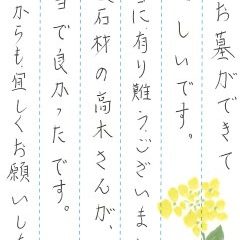 お墓ができて
しいです。
に有り難うございまし
石材の高木さんが、
当で良かったです。
からも宜しくお願いしま